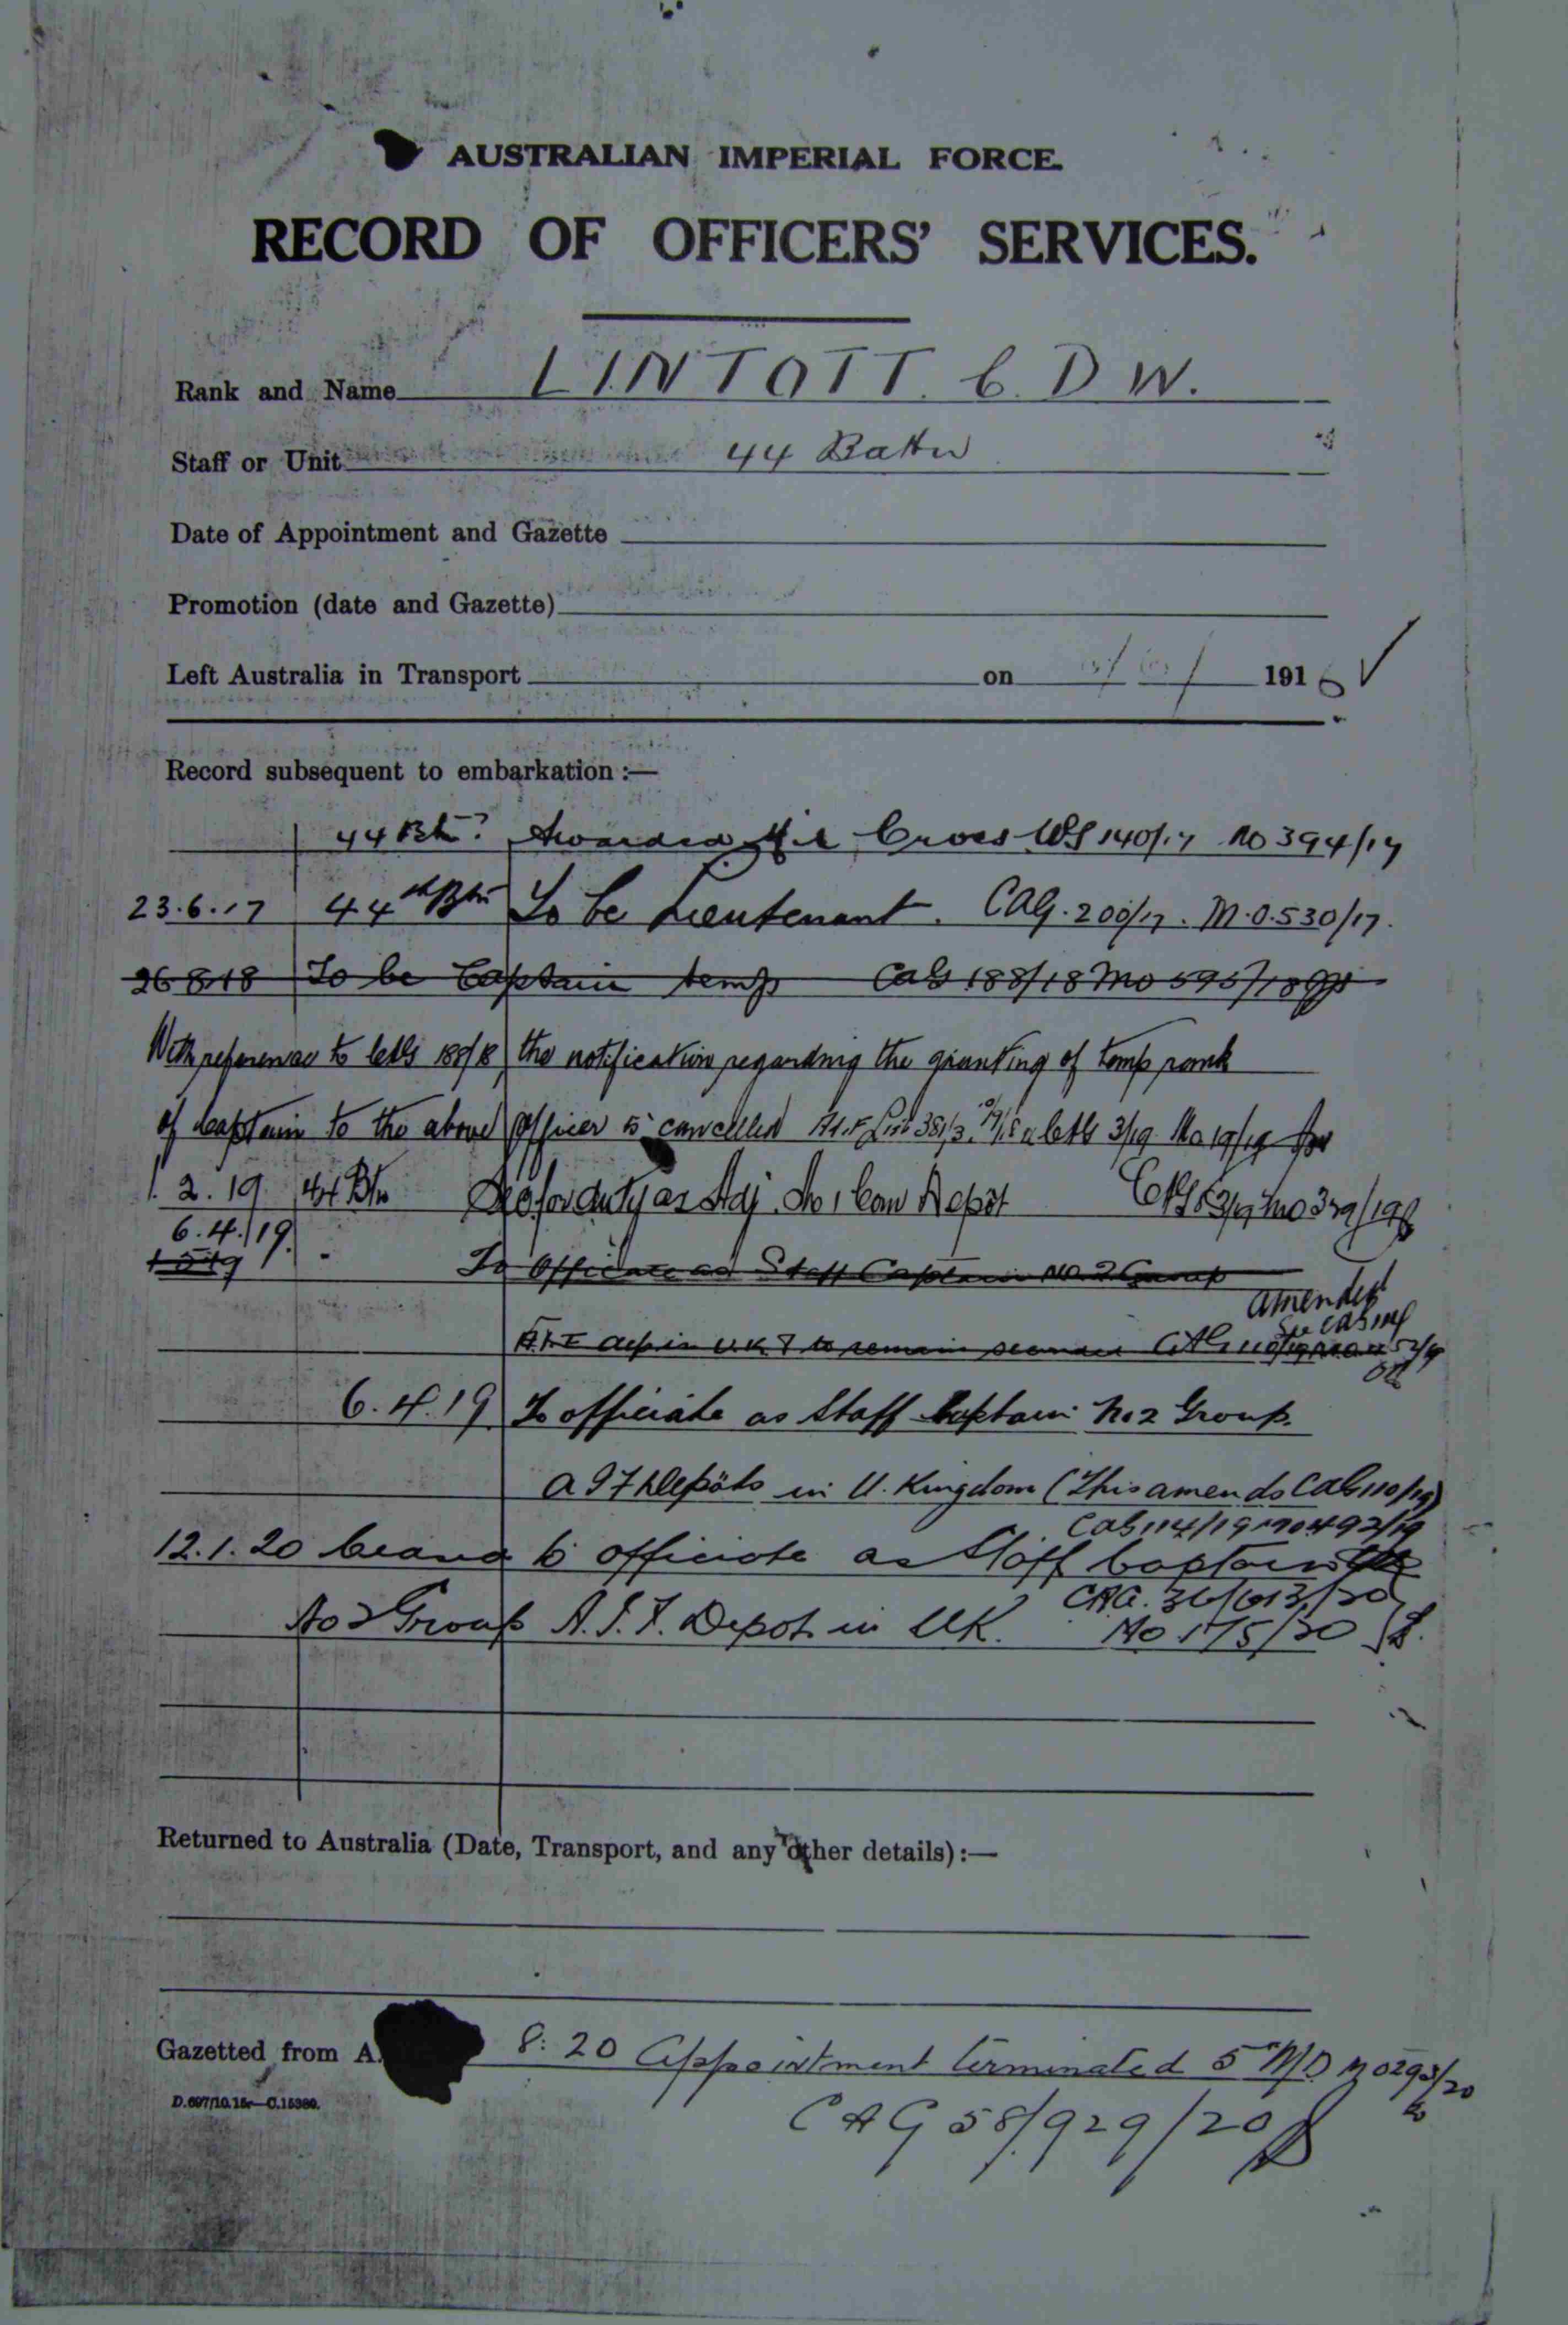 AUSTRALIAN IMPERIAL FORCE.
RECORD OF OFFICERS' SERVICES.
Rank and Name LINTOTT. C. D W.
Staff or Unit 44 Battn
Date of Appointment and Gazette
Promotion (date and Gazette)
Left Australia in Transport on 1916
Record subsequent to embarkation :—
44 Btn Awarded Mil Cross 140/17 MO 394/17
23.6.17 44th Btn To be Lieutenant. CAG. 200/17. M.O.530/17.
26 8 18 To be Captain temp CAG 188/18 MO 595/18
With reference to CAG 188/18, the notification regarding the granting of temp rank
of Captain to the above officer is cancelled A.I.F List 381/3 CAG 3/19 Mo 19/19
1. 2. 19 44 Btn for duty as Adj. No 1 Com Depot CAG 83/19 MO 379/19
6.4.19.
1 5 19 To Officiate as Staff Captain No. 2 Group
amended
See CAG
A.I.F. in U.K & to remain seconded CAG 110/19
6.4.19 To officiate as Staff Captain No 2 Group.
A I F Depôts in U. Kingdom (This amends CAG 110/19)
CAG 114/19 MO 492/19
12.1.20 to officiate as Staff Captain
CAG. 36/613/20
No 2 Group A.I.F. Depot in UK. Mo 175/20
Returned to Australia (Date, Transport, and any other details) :—
Gazetted from A. 8. 20 Appointment terminated 5 MD MO293/20
D.697/10.15—C.15380.
CAG 58/929/20